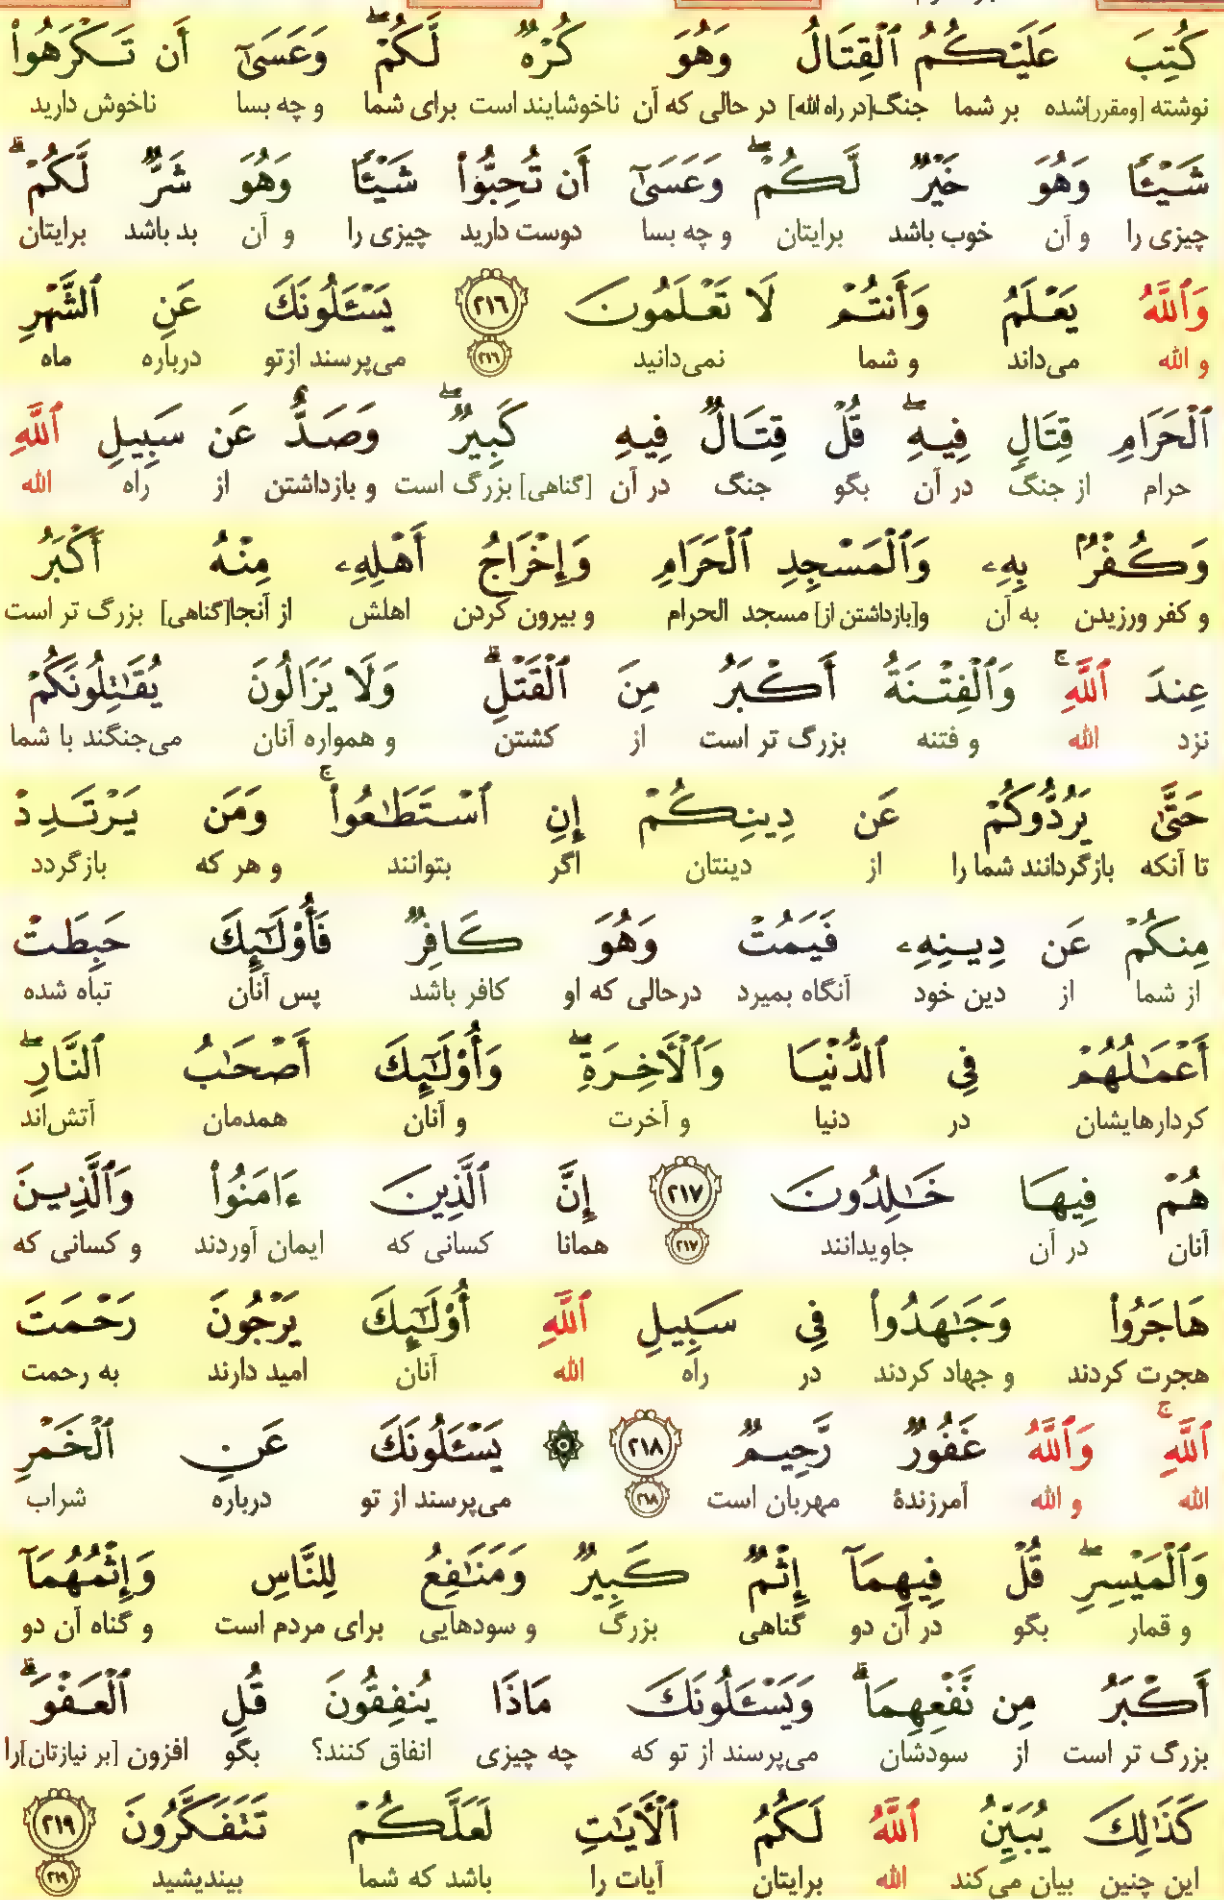 كُتِبَ عَلَيْكُمُ ٱلْقِتَالُ وَهُوَ كُرْهٌ لَّكُمْ ۖ وَعَسَىٰٓ أَن تَكْرَهُوا۟
نوشته [ومقرر]شده بر شما جنگ[در راه الله] در حالی که آن ناخوشایند است برای شما و چه بسا ناخوش دارید
شَيْـًٔا وَهُوَ خَيْرٌ لَّكُمْ ۖ وَعَسَىٰٓ أَن تُحِبُّوا۟ شَيْـًٔا وَهُوَ شَرٌّ لَّكُمْ ۗ
چیزی را و آن خوب باشد برایتان و چه بسا دوست دارید چیزی را و آن بد باشد برایتان
وَٱللَّهُ يَعْلَمُ وَأَنتُمْ لَا تَعْلَمُونَ ٢١٦ يَسْـَٔلُونَكَ عَنِ ٱلشَّهْرِ
و الله می‌داند و شما نمی‌دانید ٢١٦ می‌پرسند ازتو درباره ماه
ٱلْحَرَامِ قِتَالٍ فِيهِ ۖ قُلْ قِتَالٌ فِيهِ كَبِيرٌ ۖ وَصَدٌّ عَن سَبِيلِ ٱللَّهِ
حرام از جنگ در آن بگو جنگ در آن [گناهی] بزرگ است و بازداشتن از راه الله
وَكُفْرٌۢ بِهِۦ وَٱلْمَسْجِدِ ٱلْحَرَامِ وَإِخْرَاجُ أَهْلِهِۦ مِنْهُ أَكْبَرُ
و کفر ورزیدن به آن و[بازداشتن از] مسجد الحرام و بیرون کردن اهلش از آنجا[گناهی] بزرگ تر است
عِندَ ٱللَّهِ ۚ وَٱلْفِتْنَةُ أَكْبَرُ مِنَ ٱلْقَتْلِ ۗ وَلَا يَزَالُونَ يُقَـٰتِلُونَكُمْ
نزد الله و فتنه بزرگ تر است از کشتن و همواره آنان می‌جنگند با شما
حَتَّىٰ يَرُدُّوكُمْ عَن دِينِكُمْ إِنِ ٱسْتَطَـٰعُوا۟ ۚ وَمَن يَرْتَدِدْ
تا آنکه بازگردانند شما را از دینتان اگر بتوانند و هر که بازگردد
مِنكُمْ عَن دِينِهِۦ فَيَمُتْ وَهُوَ كَافِرٌ فَأُو۟لَـٰٓئِكَ حَبِطَتْ
از شما از دین خود آنگاه بمیرد درحالی که او کافر باشد پس آنان تباه شده
أَعْمَـٰلُهُمْ فِى ٱلدُّنْيَا وَٱلْـَٔاخِرَةِ ۖ وَأُو۟لَـٰٓئِكَ أَصْحَـٰبُ ٱلنَّارِ ۖ
کردارهایشان در دنیا و آخرت و آنان همدمان آتش‌اند
هُمْ فِيهَا خَـٰلِدُونَ ٢١٧ إِنَّ ٱلَّذِينَ ءَامَنُوا۟ وَٱلَّذِينَ
آنان در آن جاویدانند ٢١٧ همانا کسانی که ایمان آوردند و کسانی که
هَاجَرُوا۟ وَجَـٰهَدُوا۟ فِى سَبِيلِ ٱللَّهِ أُو۟لَـٰٓئِكَ يَرْجُونَ رَحْمَتَ
هجرت کردند و جهاد کردند در راه الله آنان امید دارند به رحمت
ٱللَّهِ ۚ وَٱللَّهُ غَفُورٌ رَّحِيمٌ ٢١٨ ۞ يَسْـَٔلُونَكَ عَنِ ٱلْخَمْرِ
الله و الله آمرزندهٔ مهربان است ٢١٨ می‌پرسند از تو درباره شراب
وَٱلْمَيْسِرِ ۖ قُلْ فِيهِمَآ إِثْمٌ كَبِيرٌ وَمَنَـٰفِعُ لِلنَّاسِ وَإِثْمُهُمَآ
و قمار بگو در آن دو گناهی بزرگ و سودهایی برای مردم است و گناه آن دو
أَكْبَرُ مِن نَّفْعِهِمَا ۗ وَيَسْـَٔلُونَكَ مَاذَا يُنفِقُونَ قُلِ ٱلْعَفْوَ ۗ
بزرگ تر است از سودشان می‌پرسند از تو که چه چیزی انفاق کنند؟ بگو افزون [بر نیازتان]را
كَذَٰلِكَ يُبَيِّنُ ٱللَّهُ لَكُمُ ٱلْـَٔايَـٰتِ لَعَلَّكُمْ تَتَفَكَّرُونَ ٢١٩
این چنین بیان می‌کند الله برایتان آیات را باشد که شما بیندیشید ٢١٩